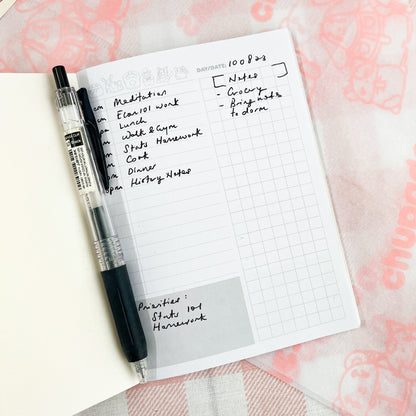 DAY/DATE: 100823
am Meditation
am Econ 101 work
pm Lunch
Walk & Gym
Stats Homework
Cook
Dinner
pm History Notes
[Notes]
- Grocery
- Bring mats
to dorm
Priorities:
Stats 101
Homework